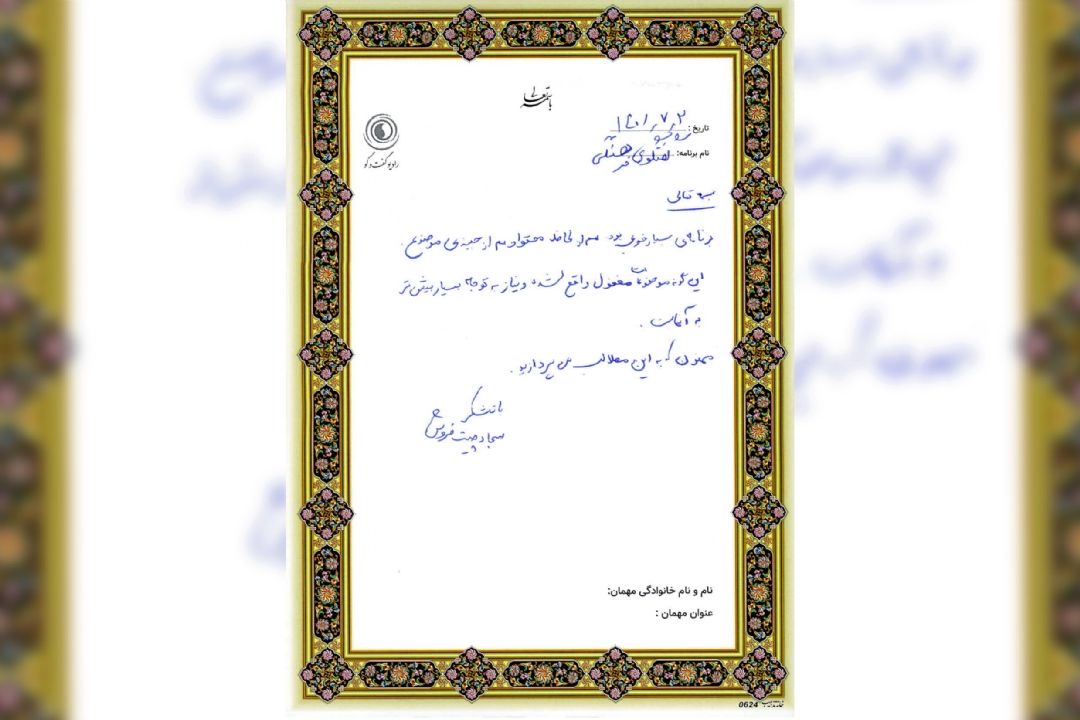 باسمه تعالی
رادیو گفت و گو
تاریخ: ۱۴۰۱٫۷٫۲
نام برنامه: گفتگوی فرهنگی
بسمه تعالی
برنامه‌ی بسیار خوبی بود هم از لحاظ محتوا و هم از جنبه‌ی موضوع.
این گونه موضوعات مغفول واقع شده و نیاز به توجه بسیار بیش‌تر
به آنهاست.
ممنون که به این مطالب می پردازید.
با تشکر
سجاد چیت فروش
نام و نام خانوادگی مهمان:
عنوان مهمان :
0624